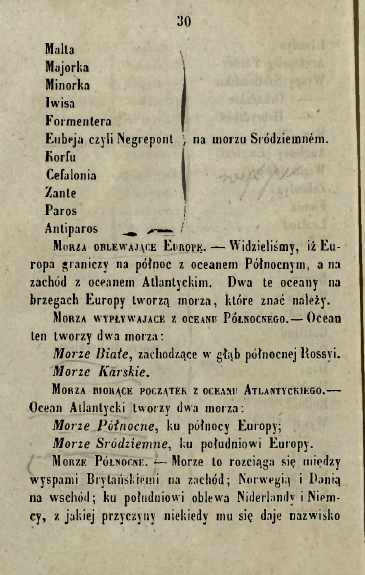 30
Malta
Majorka
Minorka
Iwisa
Formentera
Eubeja czyli Negrepont na morzu Sródziemném.
Korfu
Cefalonia
Zante
Paros
Antiparos
Morza oblewające Europę. — Widzieliśmy, iż Eu-
ropa graniczy na północ z oceanem Północnym, a na
zachód z oceanem Atlantyckim. Dwa te oceany na
brzegach Europy tworzą morza, które znać należy.
Morza wypływające z oceanu Północnego. — Ocean
ten tworzy dwa morza:
Morze Białe, zachodzące w głąb północnej Rossyi.
Morze Karskie.
Morza biorące początek z oceanu Atlantyckiego.—
Ocean Atlantycki tworzy dwa morza:
Morze Północne, ku północy Europy;
Morze Sródziemne, ku południowi Europy.
Morze Północne. — Morze to rozciąga się między
wyspami Brytańskiemi na zachód; Norwegią i Danią
na wschód; ku południowi oblewa Niderlandy i Niem-
cy, z jakiej przyczyny niekiedy mu się daje nazwisko